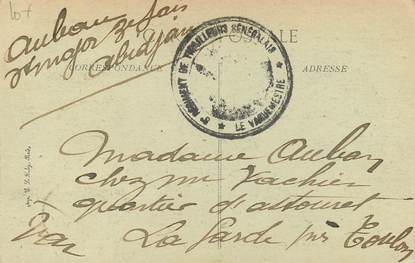 107
Auban
sergent
Abidjan
CARTE POSTALE
CORRESPONDANCE
ADRESSE
RÉGIMENT DE TIRAILLEURS SÉNÉGALAIS
LE VAGUEMESTRE
Madame Auban
chez mr Vachier
quartier d'assouret
Var La Garde près Toulon